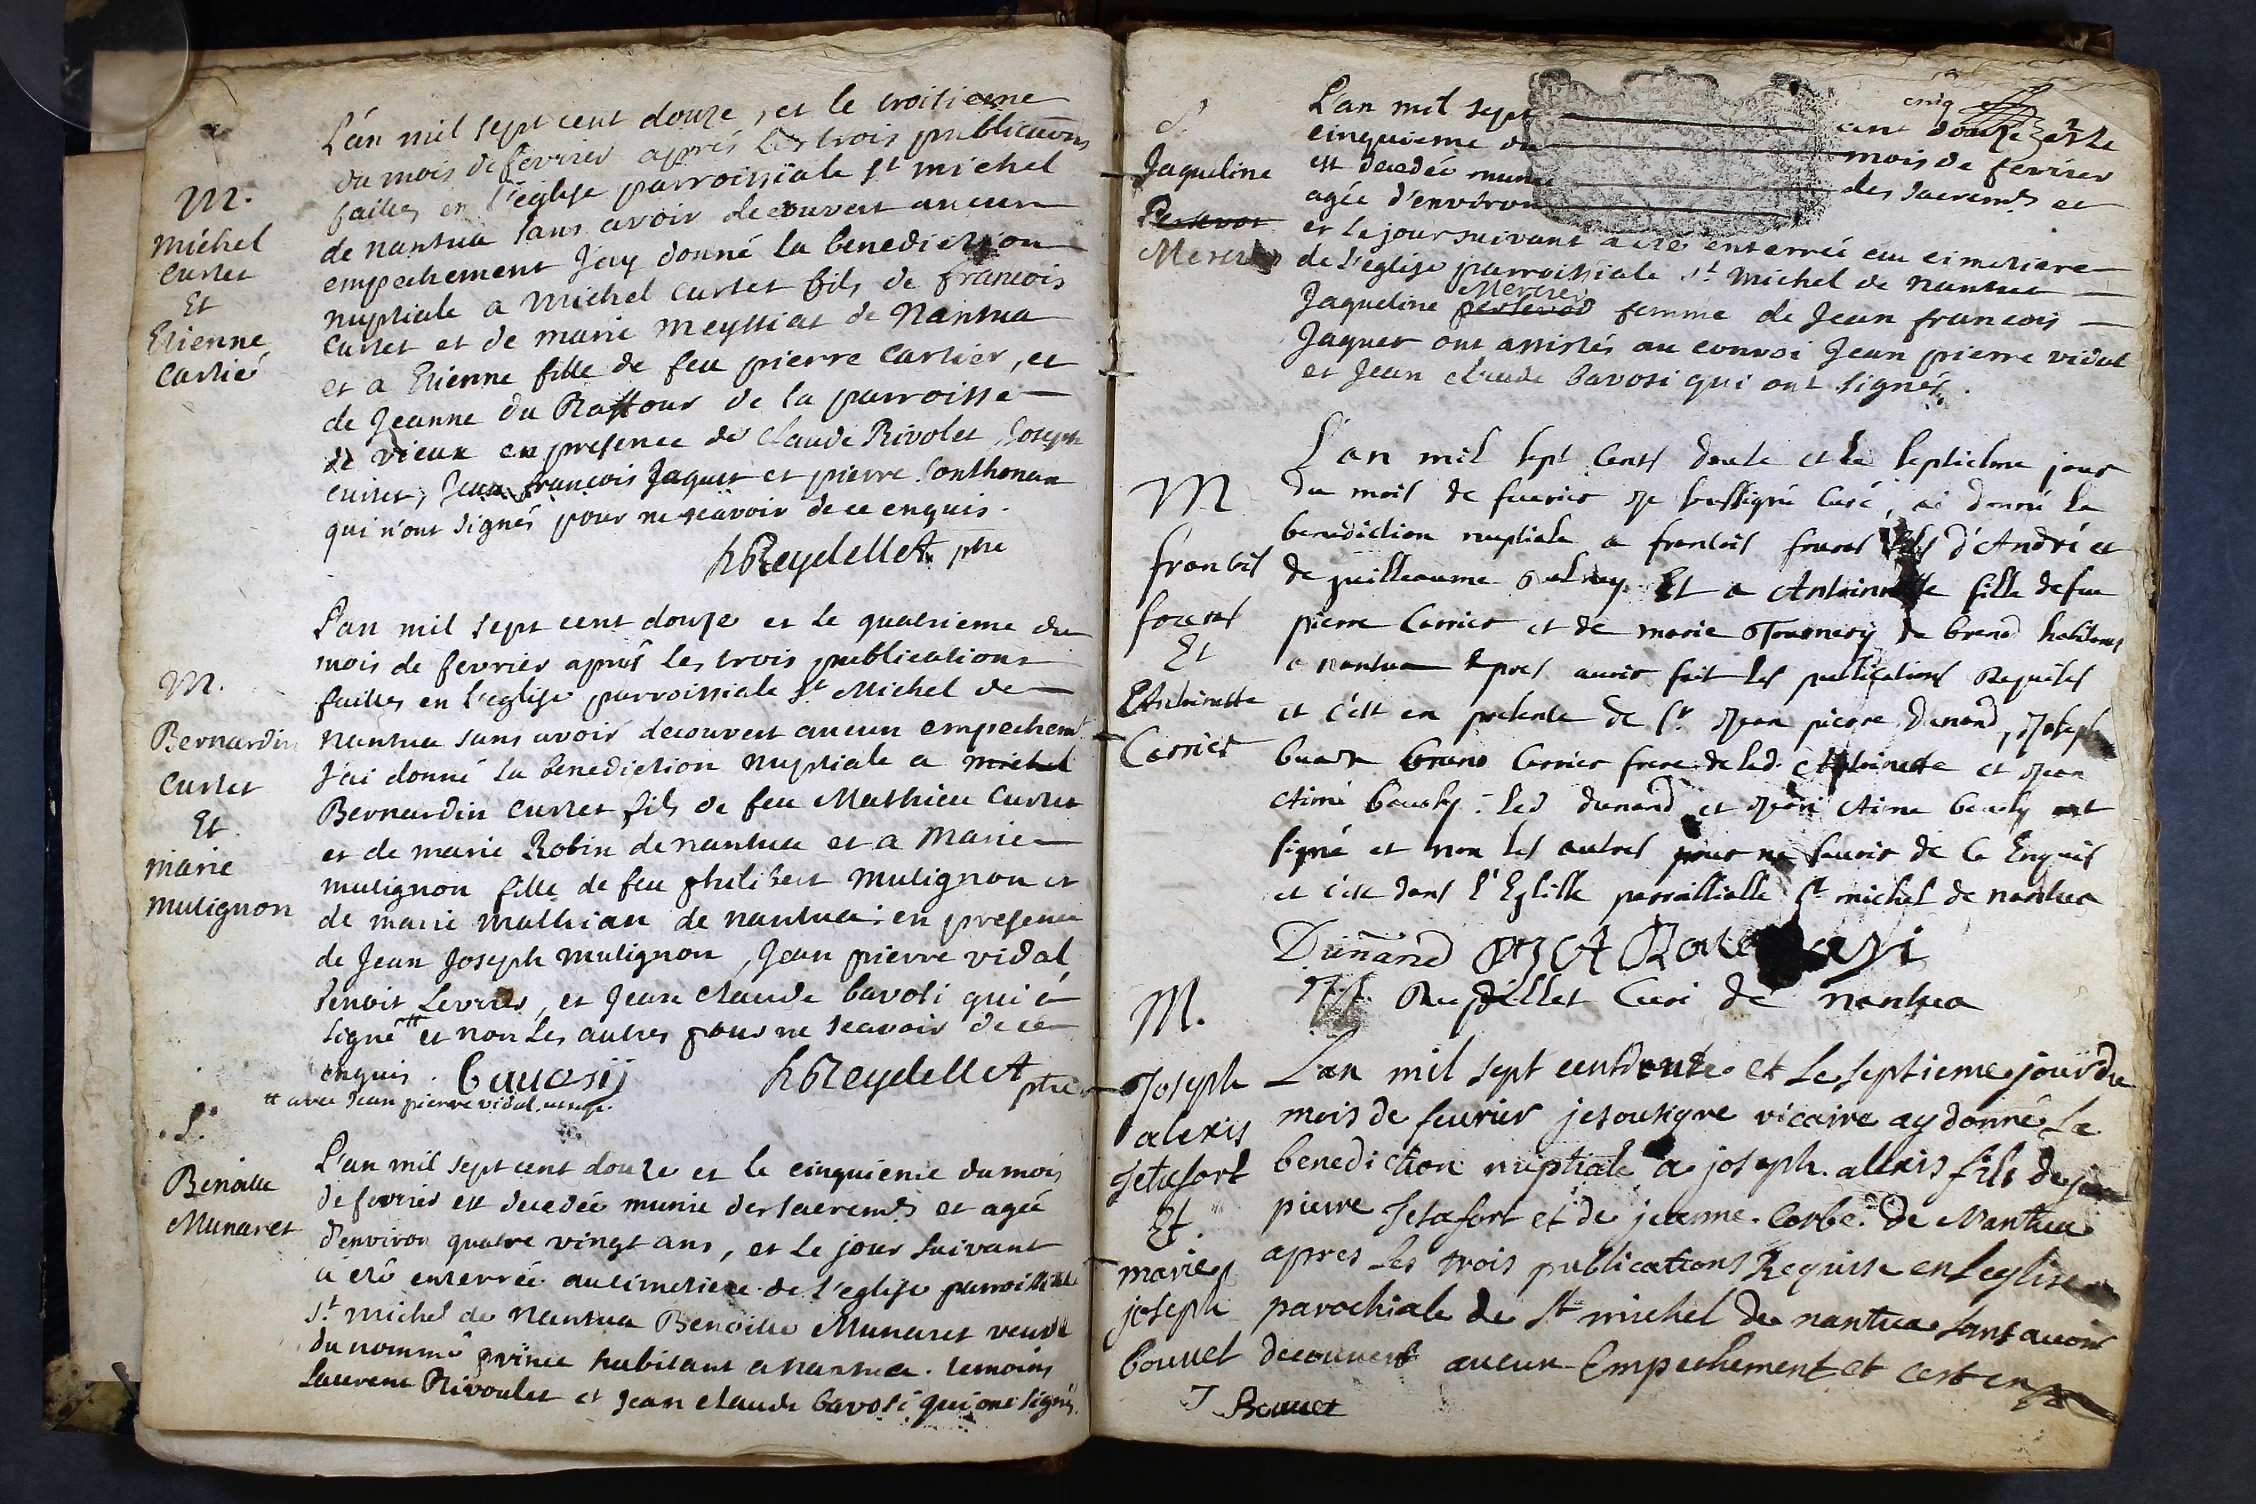 M.
Michel
Curtet
Et
Etienne
Cartié
L'an mil sept cent douze, et le troisieme
du mois de fevrier aprés les trois publications
faittes en l'eglise parroissiale st michel
de nantua sans avoir decouvert aucun
empechement Jay donné la benediction
nuptiale a Michel curtet fils de francois
curtet et de marie Meyssiat de Nantua
et a Etienne fille de feu pierre Cartier, et
de Jeanne du Raffour de la parroisse
de vieux en presence de Claude Rivolet, Joseph
curtet, Jean françois Jaquet et pierre Conthonax
qui n'ont signés pour ne sçavoir de ce enquis.
hReydellet ptre
M.
Bernardin
Curtet
Et
Marie
Mulignon
L'an mil sept cent douze et le quatrieme du
mois de fevrier aprés les trois publications
faittes en l'eglise parroissiale st Michel de
Nantua sans avoir decouvert aucun empechemt
J'ai donné la benediction nuptiale a michel
Bernardin curtet fils de feu Mathieu Curtet
et de marie Robin de nantua et a Marie
mulignon fille de feu philibert Mulignon et
de marie Mathian de nantua: en presence
de Jean Joseph Mulignon, Jean pierre vidal
benoit Levrier, et Jean claude bavosi qui a
signé # et non les autres pour ne sçavoir de ce
enquis. bauosij hReydellet ptre
# avec Jean pierre vidal
S.
Benoitte
Munaret
L'an mil sept cent douze et le cinquieme du mois
de fevrier est decedée munie des sacremts et agée
d'environ quatre vingt ans, et le jour suivant
a eté enterrée au cimetiere de l'eglise parroissiale
st Michel de Nantua Benoitte Munaret veuve
du nommé prince habitant a nantua. temoins
Laurent Rivoulet et Jean claude bavosi qui ont signés.
cinq
S.
Jaqueline
Perserod
Mercier
L'an mil sept cent douze et le
cinquieme du mois de fevrier
est decedée munie des sacremts et
agée d'environ
et le jour suivant a eté enterrée au cimetiere
de l'eglise parroissiale st Michel de Nantua
Mercier
Jaqueline perserod femme de Jean francois
Jaquet ont assistés au convoi Jean pierre vidal
et Jean claude bavosi qui ont signés.
M
francois
Et
Antoinette
Carrier
L'an mil sept cents douse et le septiesme jour
du mois de feurier Je soussigné Curé, ai donné la
benediction nuptiale a francois fils d'André et
de guilleaume Et a Antoinette fille de feu
pierre Carrier et de marie Tournery de brend habitans
a nantua apres auoir fait les publications Requises
et c'est en presence de sr. Jean pierre Dunand, Joseph
bruno Carrier frere de lad. Antoinette et Jean
Aimé bauosy. led dunand et Jean Aime bauosy ont
signé et non les autres pour ne scauoir de ce Enquis
et c'est dans l'Eglise parroissialle st michel de nantua
Dunand
Reydellet Curé de nantua
M.
Joseph
alexis
Jetafort
Et
marie
joseph
bouuet
L'an mil sept cent douze et Le septieme jour du
mois de feurier je sousigne vicaire ay donné La
benediction nuptiale a joseph alexis fils de jean
pierre Jetafort et de jeanne Corbe de Nantua
apres Les trois publications Requise en Leglise
parochiale de St michel de nantua sans auoir
decouuert aucun Empechement et cest en
J Bouuet